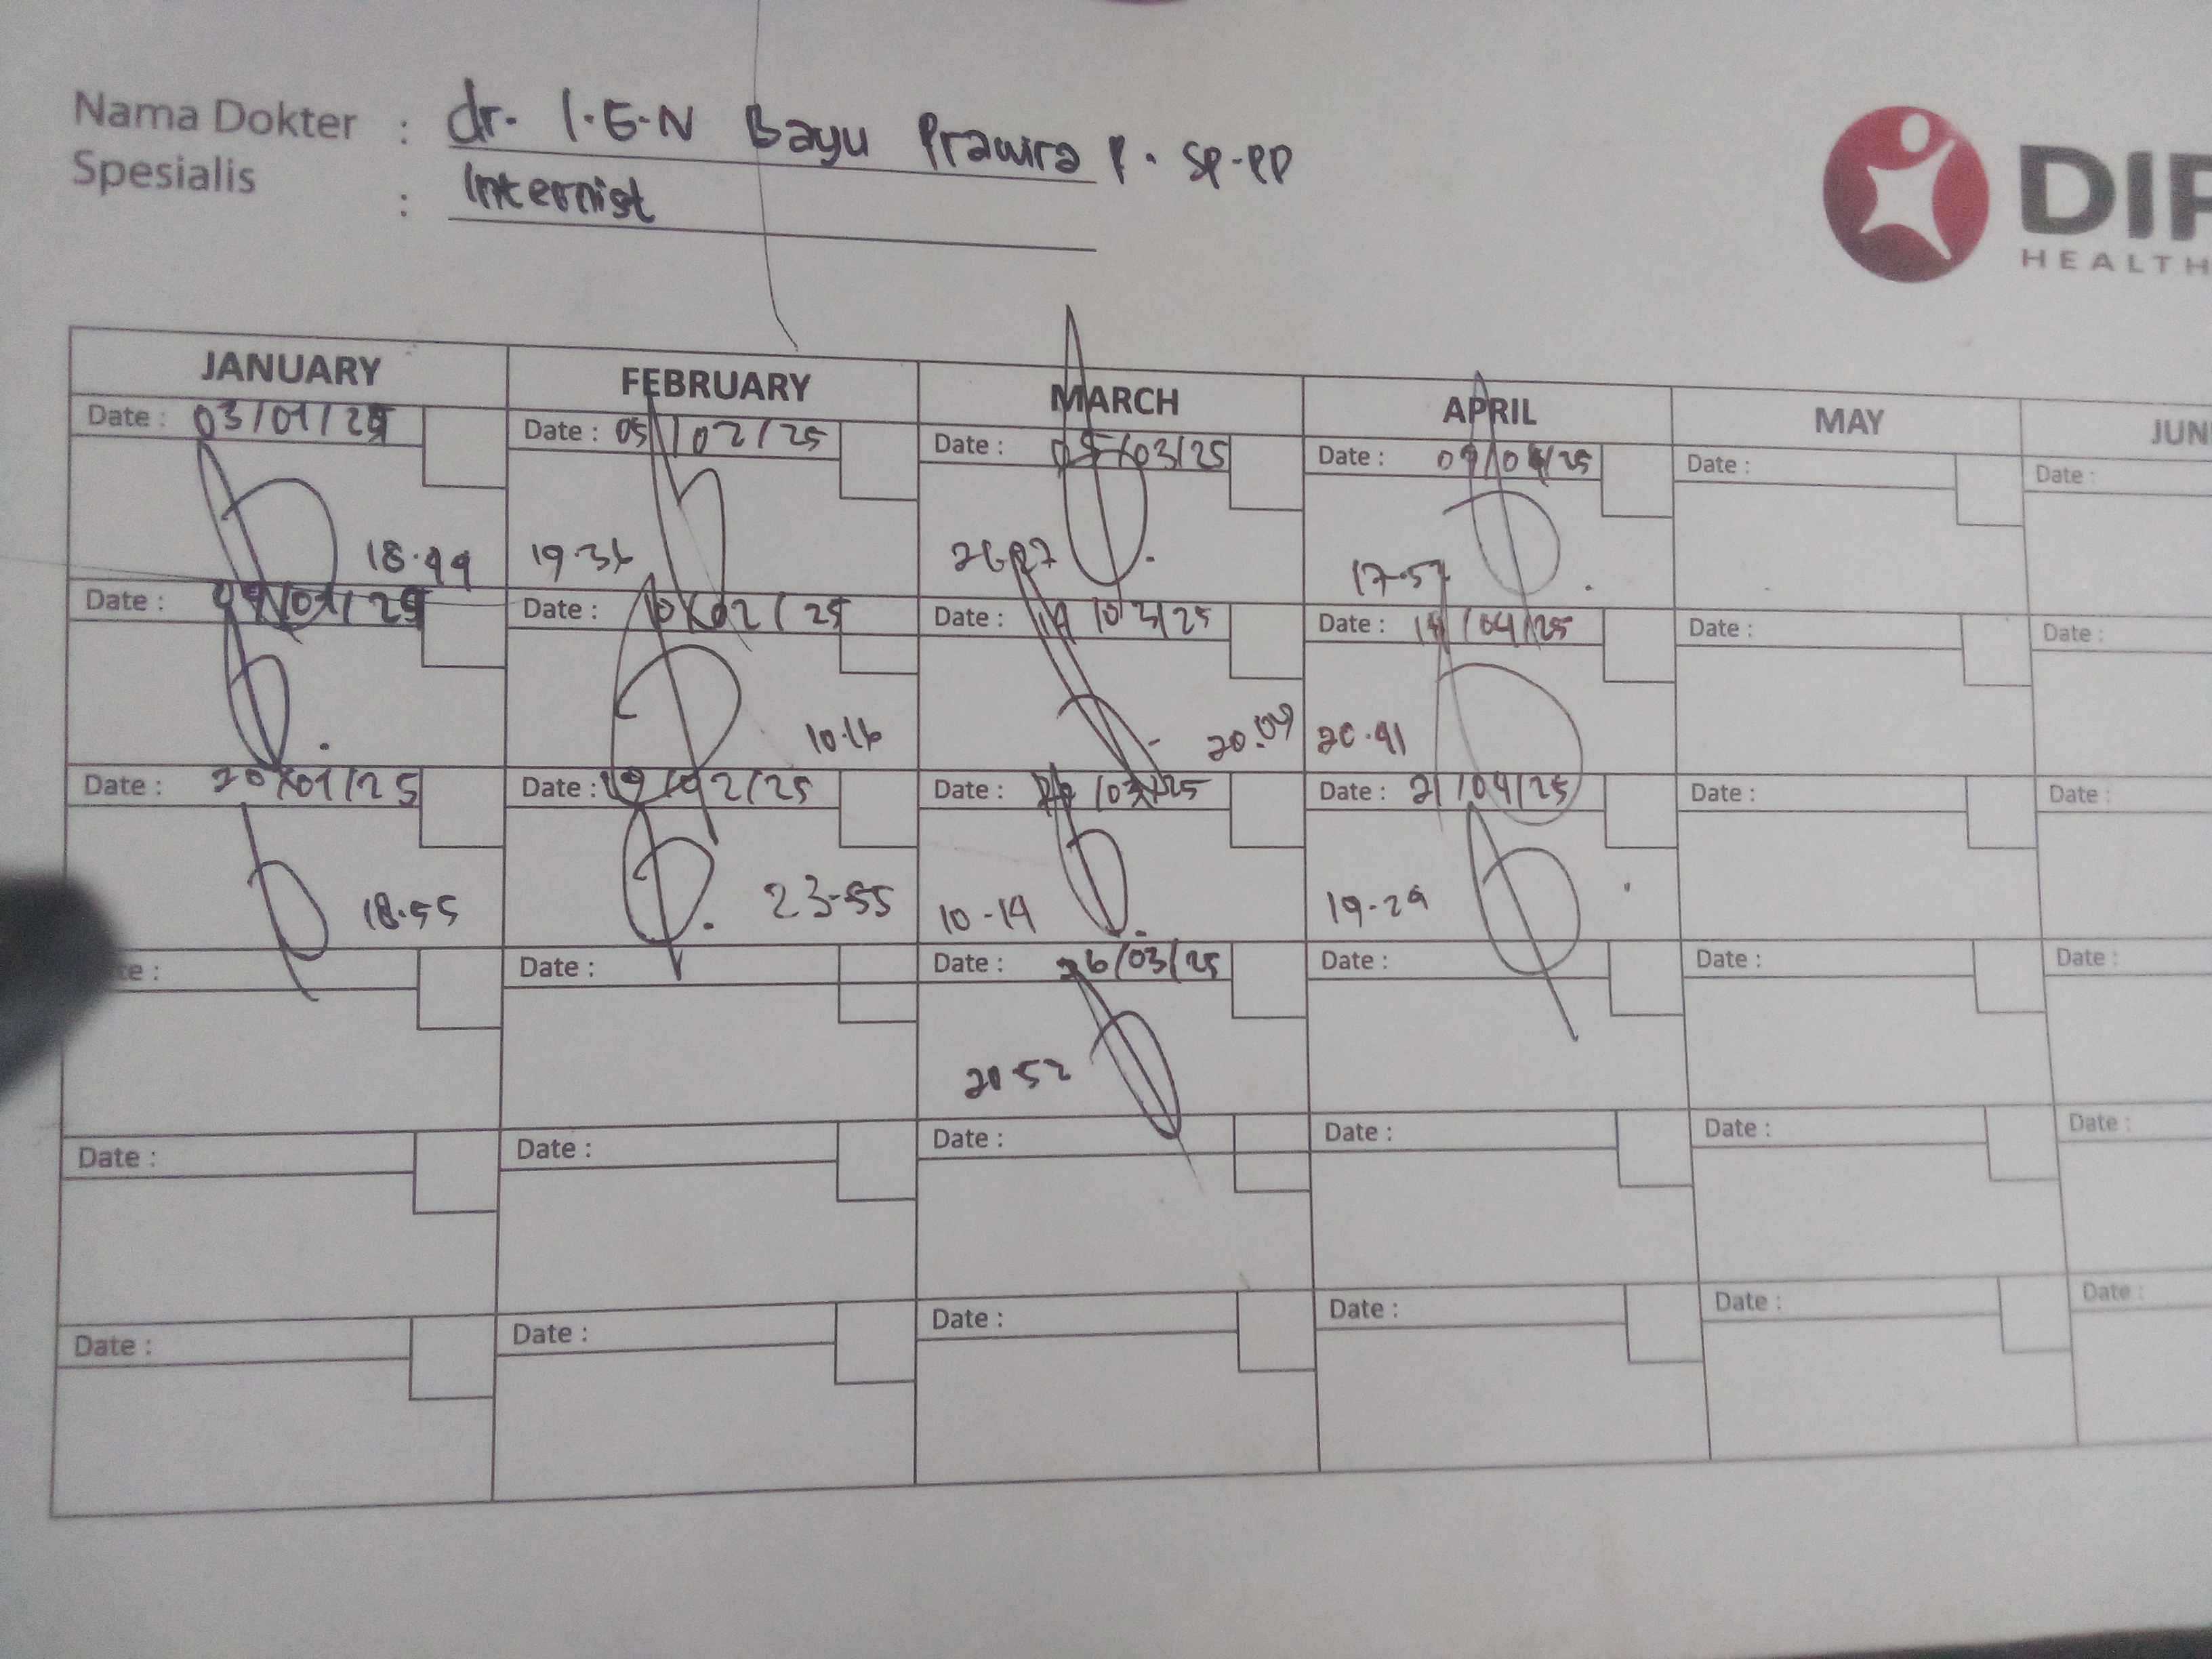 Nama Dokter : dr. I.G.N Bayu Prawira P. SP-PD
Spesialis : Internist
DIP
HEALTH
JANUARY FEBRUARY MARCH APRIL MAY JUN
Date : 03/01/25 Date : 05/02/25 Date : 05/03/25 Date : 09/04/25 Date : Date :
18.49 19.36 17.57
Date : Date : 10/02/25 Date : 14/03/25 Date : 14/04/25 Date : Date :
10.16 20.09 20.41
Date : 20/01/25 Date : 19/02/25 Date : /03/25 Date : 21/04/25 Date : Date :
18.55 23-55 10-14 19-29
Date : Date : 26/03/25 Date : Date : Date :
20 52
Date : Date : Date : Date : Date : Date :
Date : Date : Date : Date : Date : Date :